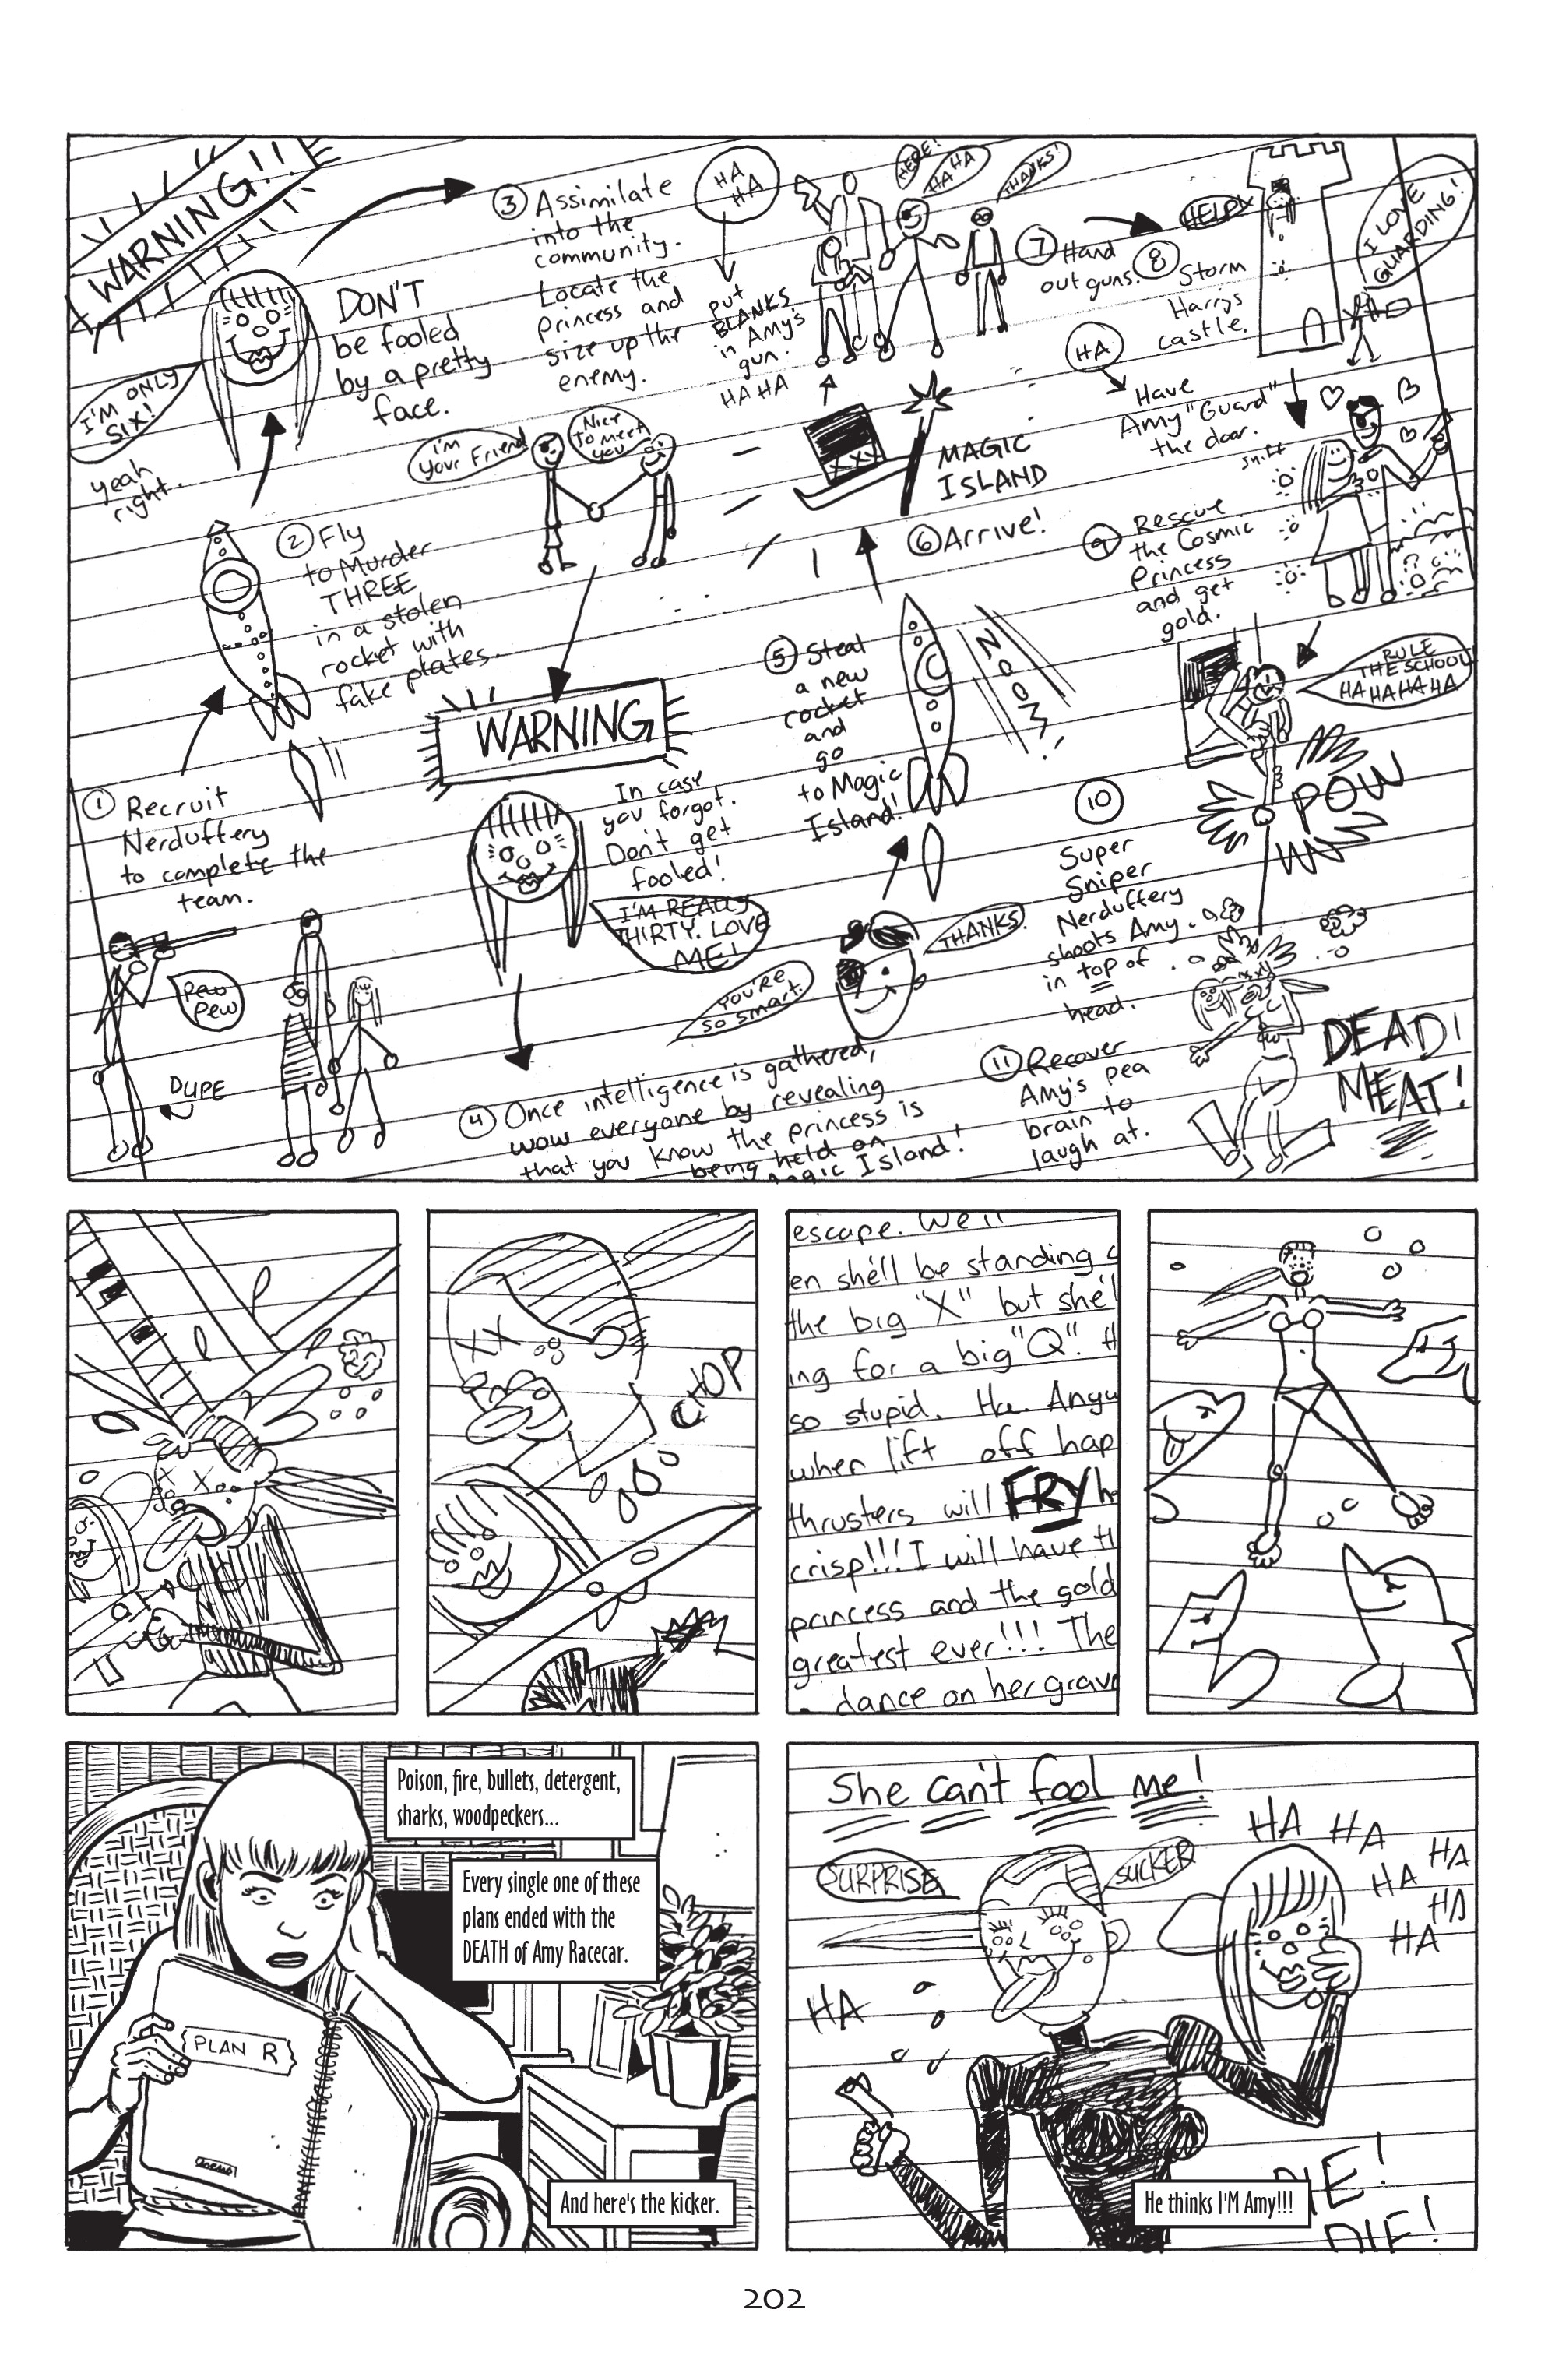 WARNING!!
DON'T
be fooled
by a pretty
face.
I'M ONLY
SIX!
yeah
right.
① Recruit
Nerduffery
to complete the
team.
pew
pew
DUPE
② Fly
to Murder
THREE
in a stolen
rocket with
fake plates.
③ Assimilate
into the
community.
Locate the
princess and
size up the
enemy.
I'm
your Friend
Nice
to meet
you
WARNING
In case
you forgot.
Don't get
fooled!
I'M REALLY
THIRTY. LOVE
ME!
④ Once intelligence is gathered,
wow everyone by revealing
that you know the princess is
being held on
Magic Island!
YOU'RE
SO SMART.
THANKS.
⑤ Steal
a new
rocket
and
go
to Magic
Island!
ZOOM!
⑥ Arrive!
MAGIC
ISLAND
HA
HA
put
BLANKS
in Amy's
gun.
HA HA
HERE!
HA HA
THANKS!
⑦ Hand
out guns.
HELP
⑧ Storm
Harry's
castle.
I LOVE
GUARDING!
HA
Have
Amy "Guard"
the door.
sniff
⑨ Rescue
the Cosmic
Princess
and get
gold.
RULE
THE SCHOOL
HA HA HA HA
POW
⑩
Super
Sniper
Nerduffery
shoots Amy.
in top of
head.
⑪ Recover
Amy's pea
brain to
laugh at.
DEAD!
MEAT!
CHOP
escape. We'll
en she'll be standing
the big "X" but she'l
ing for a big "Q".
so stupid. Ha. Anyw
when lift off hap
thrusters will FRY h
crisp!!! I will have th
princess and the gold
greatest ever!!! The
dance on her grave
Poison, fire, bullets, detergent,
sharks, woodpeckers...
Every single one of these
plans ended with the
DEATH of Amy Racecar.
PLAN R
And here's the kicker.
She can't fool me!
SURPRISE
SUCKER
HA HA
HA
HA
HA
HA
HA
DIE!
DIE!
He thinks I'M Amy!!!
202